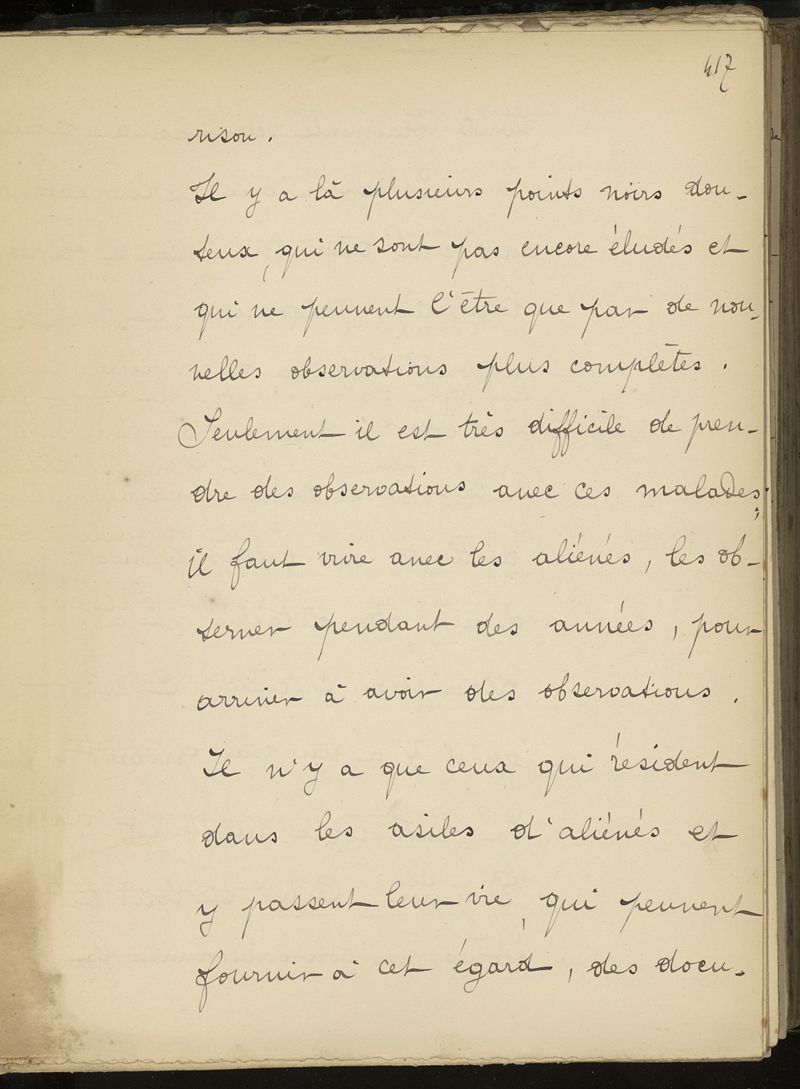 417
rison.
Il y a là plusieurs points noirs dou-
teux, qui ne sont pas encore éludés et
qui ne peuvent l'être que par de nou-
velles observations plus complètes.
Seulement il est très difficile de pren-
dre des observations avec ces malades;
il faut vivre avec les aliénés, les ob-
server pendant des années, pour
arriver à avoir des observations.
Il n'y a que ceux qui résident
dans les asiles d'aliénés et
y passent leur vie, qui peuvent
fournir à cet égard, des docu-